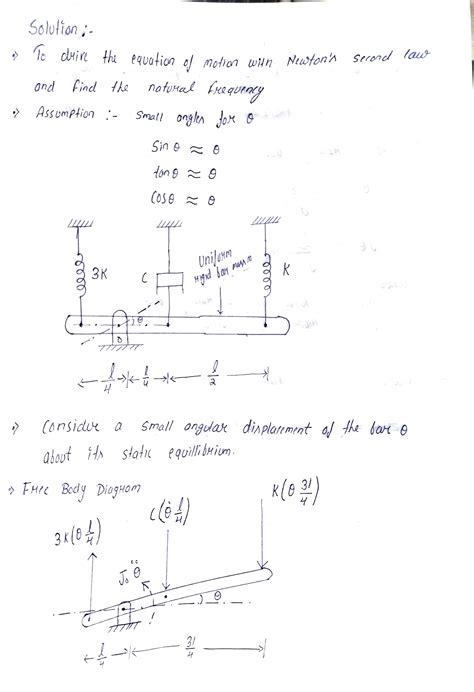 Solution :-
To drive the equation of motion with Newton's second law
and find the natural frequency
Assumption :- small angles for θ
Sin θ ≈ θ
tan θ ≈ θ
Cos θ ≈ θ
3K
C
Uniform
rigid bar mass m
K
θ
O
l/4
l/4
l/2
Consider a small angular displacement of the bar θ
about its static equillibrium.
Free Body Diagram
K(θ 3l/4)
C(θ̇ l/4)
3K(θ l/4)
J₀ θ̈
θ
l/4
3l/4